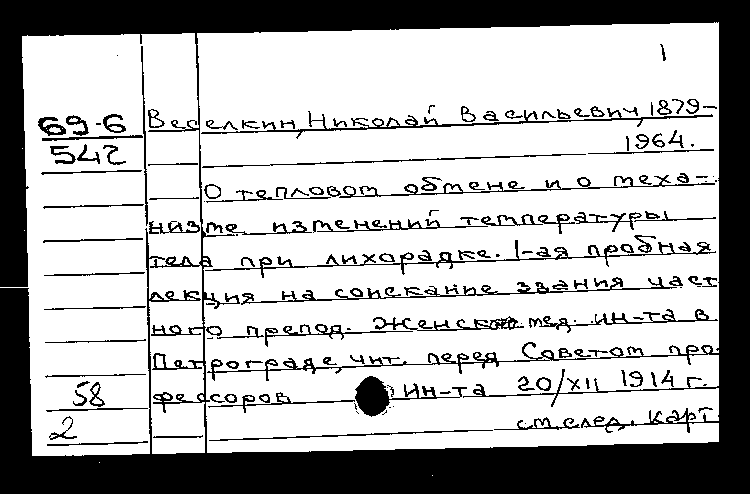 1
69-6
542
Веселкин, Николай Васильевич, 1879-
1964.
О тепловом обмене и о меха-
низме изменений температуры
тела при лихорадке. 1-ая пробная
лекция на соискание звания част
ного препод. Женск. мед. ин-та в
Петрограде, чит. перед Советом про
фессоров ин-та 20/XII 1914 г.
см. след. карт
58
2